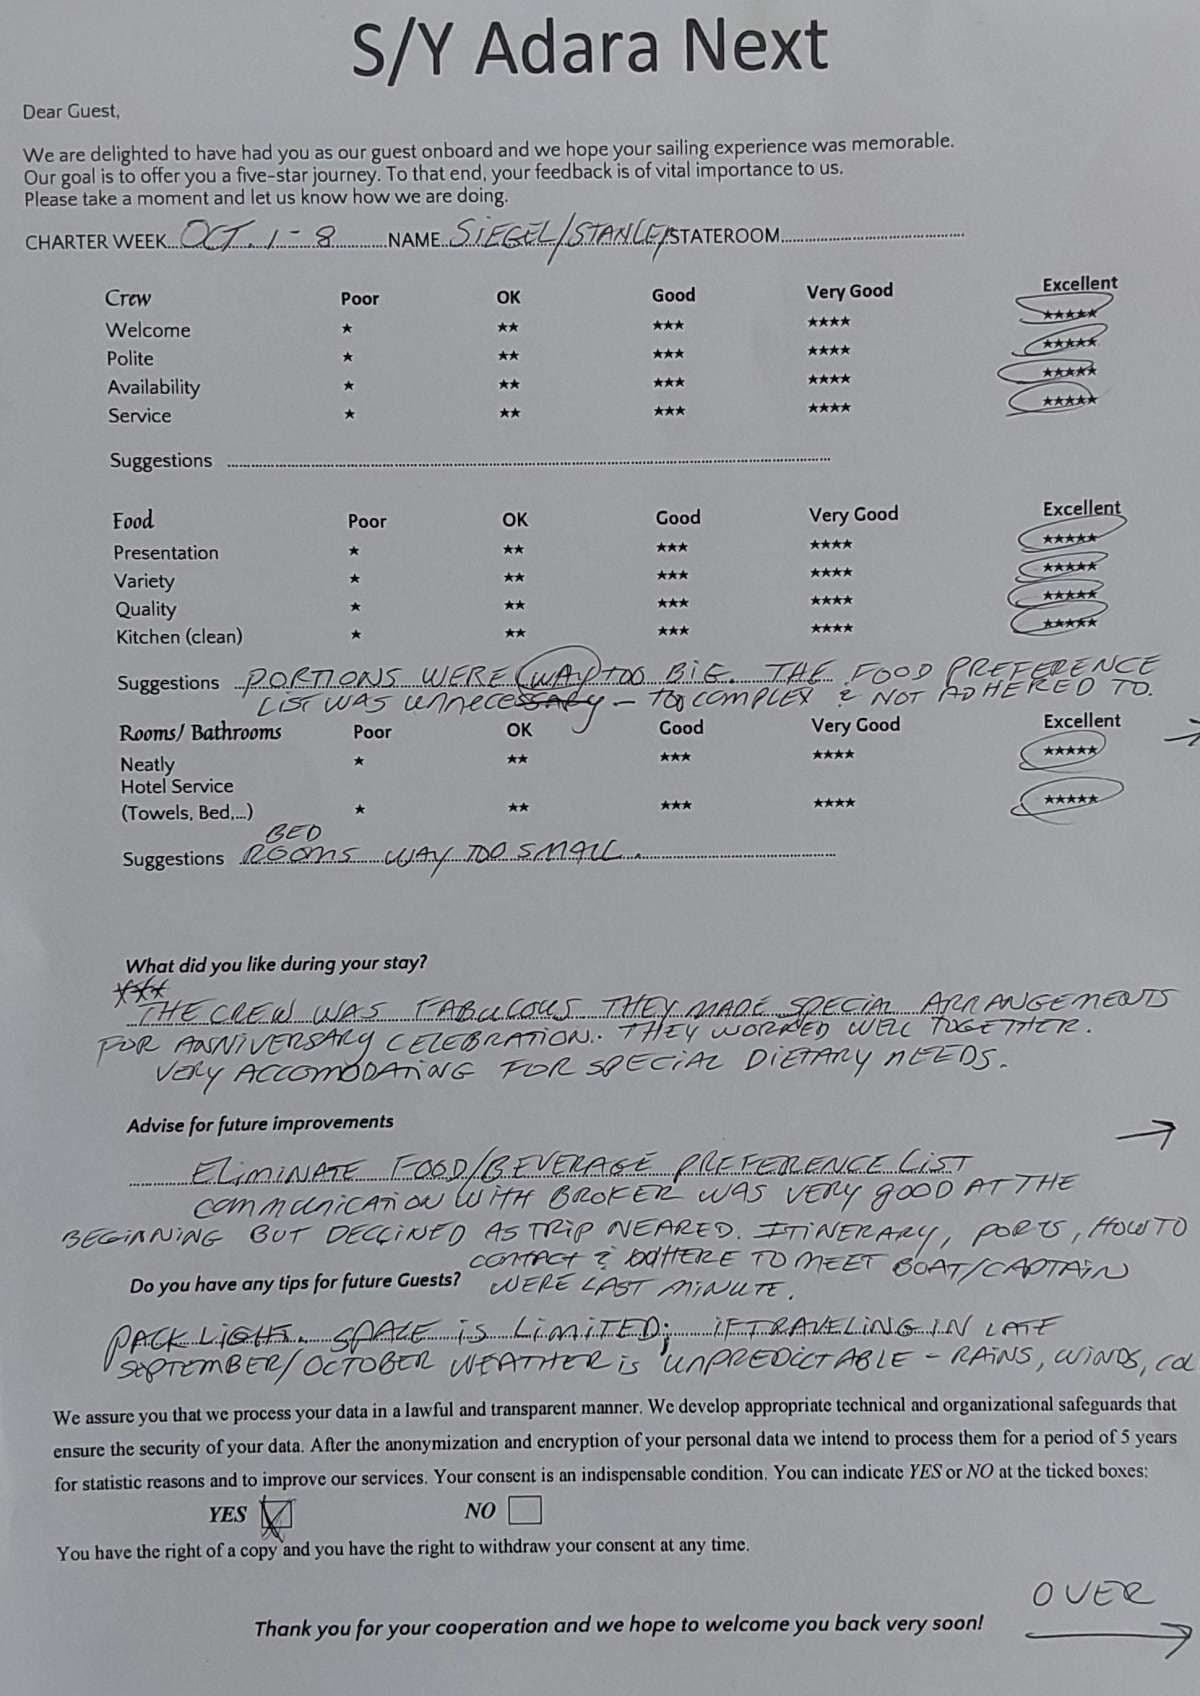 S/Y Adara Next
Dear Guest,
We are delighted to have had you as our guest onboard and we hope your sailing experience was memorable.
Our goal is to offer you a five-star journey. To that end, your feedback is of vital importance to us.
Please take a moment and let us know how we are doing.
CHARTER WEEK OCT. 1-8 NAME SIEGEL/STANLEY STATEROOM
Crew Poor OK Good Very Good Excellent
Welcome ★ ★★ ★★★ ★★★★ ★★★★★
Polite ★ ★★ ★★★ ★★★★ ★★★★★
Availability ★ ★★ ★★★ ★★★★ ★★★★★
Service ★ ★★ ★★★ ★★★★ ★★★★★
Suggestions
Food Poor OK Good Very Good Excellent
Presentation ★ ★★ ★★★ ★★★★ ★★★★★
Variety ★ ★★ ★★★ ★★★★ ★★★★★
Quality ★ ★★ ★★★ ★★★★ ★★★★★
Kitchen (clean) ★ ★★ ★★★ ★★★★ ★★★★★
Suggestions PORTIONS WERE WAY TOO BIG. THE FOOD PREFERENCE
LIST WAS UNNECESSARY – TOO COMPLEX & NOT ADHERED TO.
Rooms/ Bathrooms Poor OK Good Very Good Excellent
Neatly ★ ★★ ★★★ ★★★★ ★★★★★
Hotel Service
(Towels, Bed,...) ★ ★★ ★★★ ★★★★ ★★★★★
BED
Suggestions ROOMS WAY TOO SMALL.
What did you like during your stay?
THE CREW WAS FABULOUS THEY MADE SPECIAL ARRANGEMENTS
FOR ANNIVERSARY CELEBRATION. THEY WORKED WELL TOGETHER.
VERY ACCOMODATING FOR SPECIAL DIETARY NEEDS.
Advise for future improvements
ELIMINATE FOOD/BEVERAGE PREFERENCE LIST
COMMUNICATION WITH BROKER WAS VERY GOOD AT THE
BEGINNING BUT DECLINED AS TRIP NEARED. ITINERARY, PORTS, HOW TO
CONTACT & WHERE TO MEET BOAT/CAPTAIN
Do you have any tips for future Guests? WERE LAST MINUTE.
PACK LIGHT. SPACE IS LIMITED; IF TRAVELING IN LATE
SEPTEMBER/OCTOBER WEATHER IS UNPREDICTABLE – RAINS, WINDS, COL
We assure you that we process your data in a lawful and transparent manner. We develop appropriate technical and organizational safeguards that
ensure the security of your data. After the anonymization and encryption of your personal data we intend to process them for a period of 5 years
for statistic reasons and to improve our services. Your consent is an indispensable condition. You can indicate YES or NO at the ticked boxes:
YES NO
You have the right of a copy and you have the right to withdraw your consent at any time.
OVER
Thank you for your cooperation and we hope to welcome you back very soon!